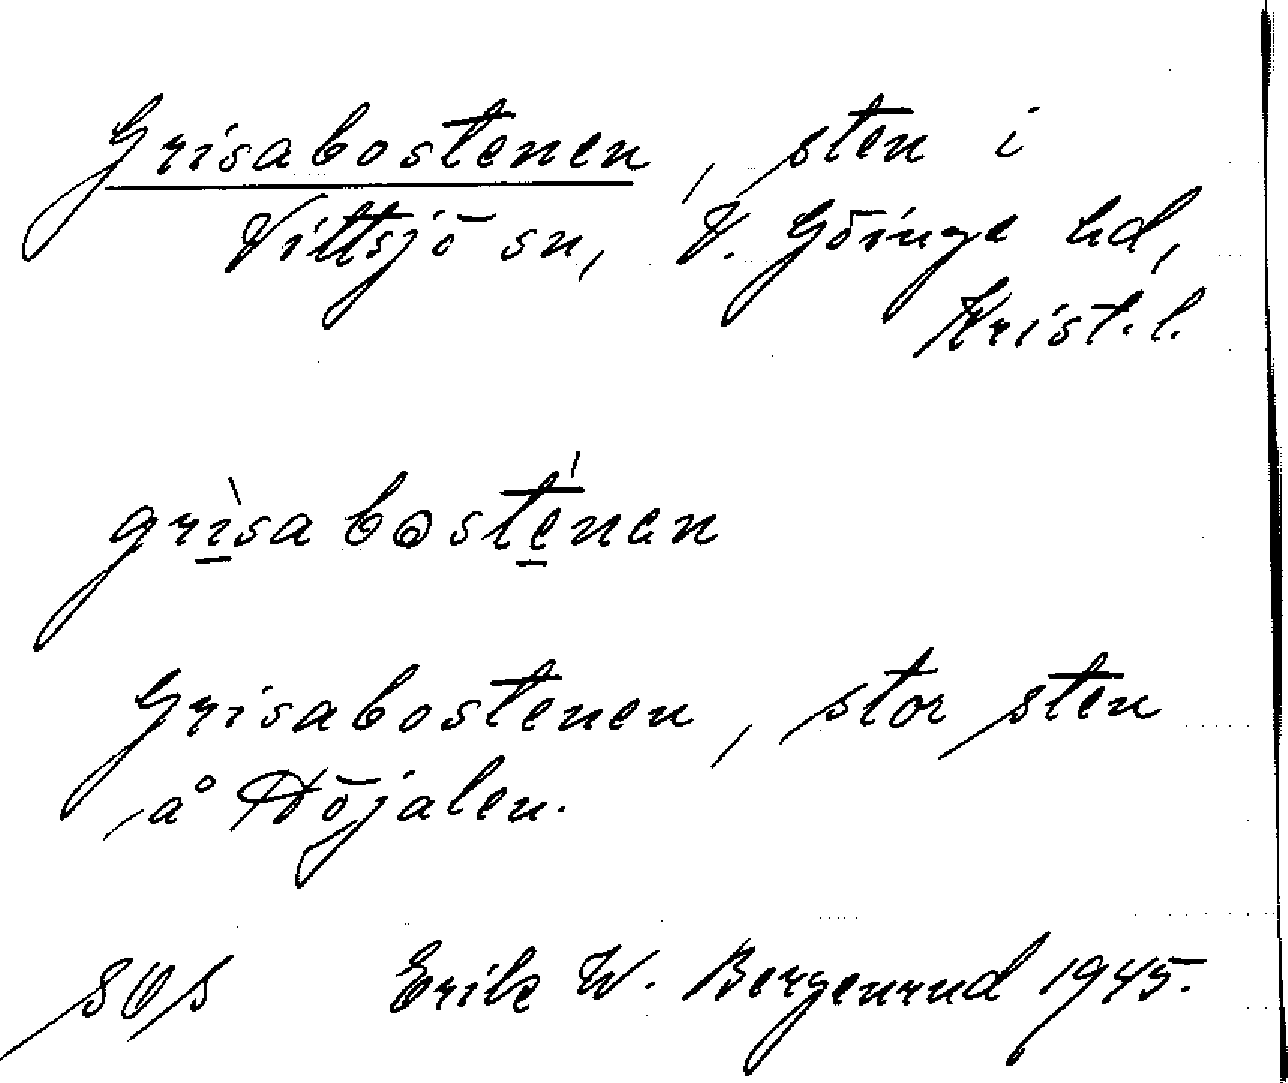 Grisabostenen, sten i
Vittsjö sn, V. Göinge hd,
Krist. l.
grìsabosténan
Grisabostenen, stor sten
å Höjalen.
SOS Erik W. Bergenrud 1945.